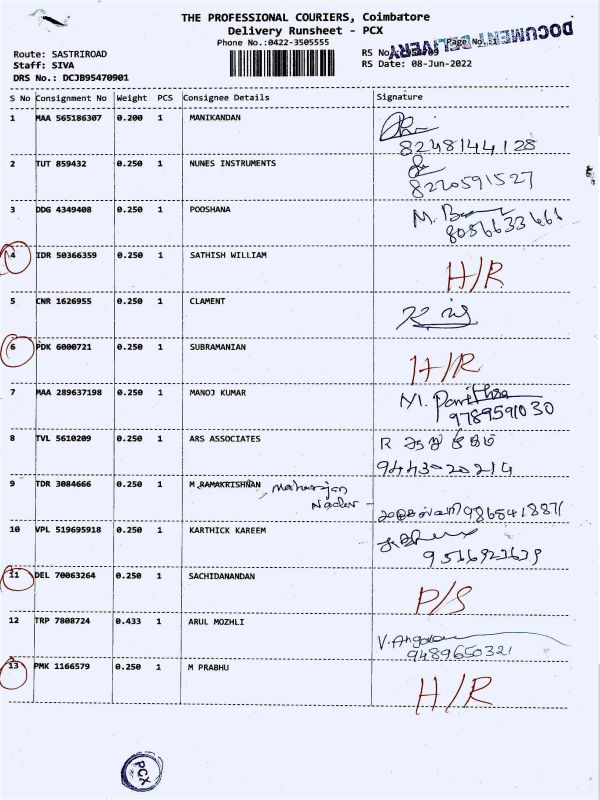 THE PROFESSIONAL COURIERS, Coimbatore
Delivery Runsheet - PCX
Phone No.:0422-3505555
DOCUMENT DELIVERY
Page No.:1
Route: SASTRIROAD
RS No
Staff: SIVA
RS Date: 08-Jun-2022
DRS No.: DCJB95470901
S No Consignment No Weight PCS Consignee Details Signature
1 MAA 565186307 0.200 1 MANIKANDAN
8248144128
2 TUT 859432 0.250 1 NUNES INSTRUMENTS
8220591527
3 DDG 4349408 0.250 1 POOSHANA M.
8056633661
4 IDR 50366359 0.250 1 SATHISH WILLIAM H/R
5 CNR 1626955 0.250 1 CLAMENT
6 PDK 6000721 0.250 1 SUBRAMANIAN H/R
7 MAA 289637198 0.250 1 MANOJ KUMAR M. Pavithra
9789591030
8 TVL 5610209 0.250 1 ARS ASSOCIATES R
9443-20214
9 TDR 3084666 0.250 1 M RAMAKRISHNAN, Maharajan
Nader - 9865418871
10 VPL 519695918 0.250 1 KARTHICK KAREEM
9566923639
11 DEL 70063264 0.250 1 SACHIDANANDAN P/S
12 TRP 7808724 0.433 1 ARUL MOZHLI V.
9489650321
13 PMK 1166579 0.250 1 M PRABHU H/R
PCX